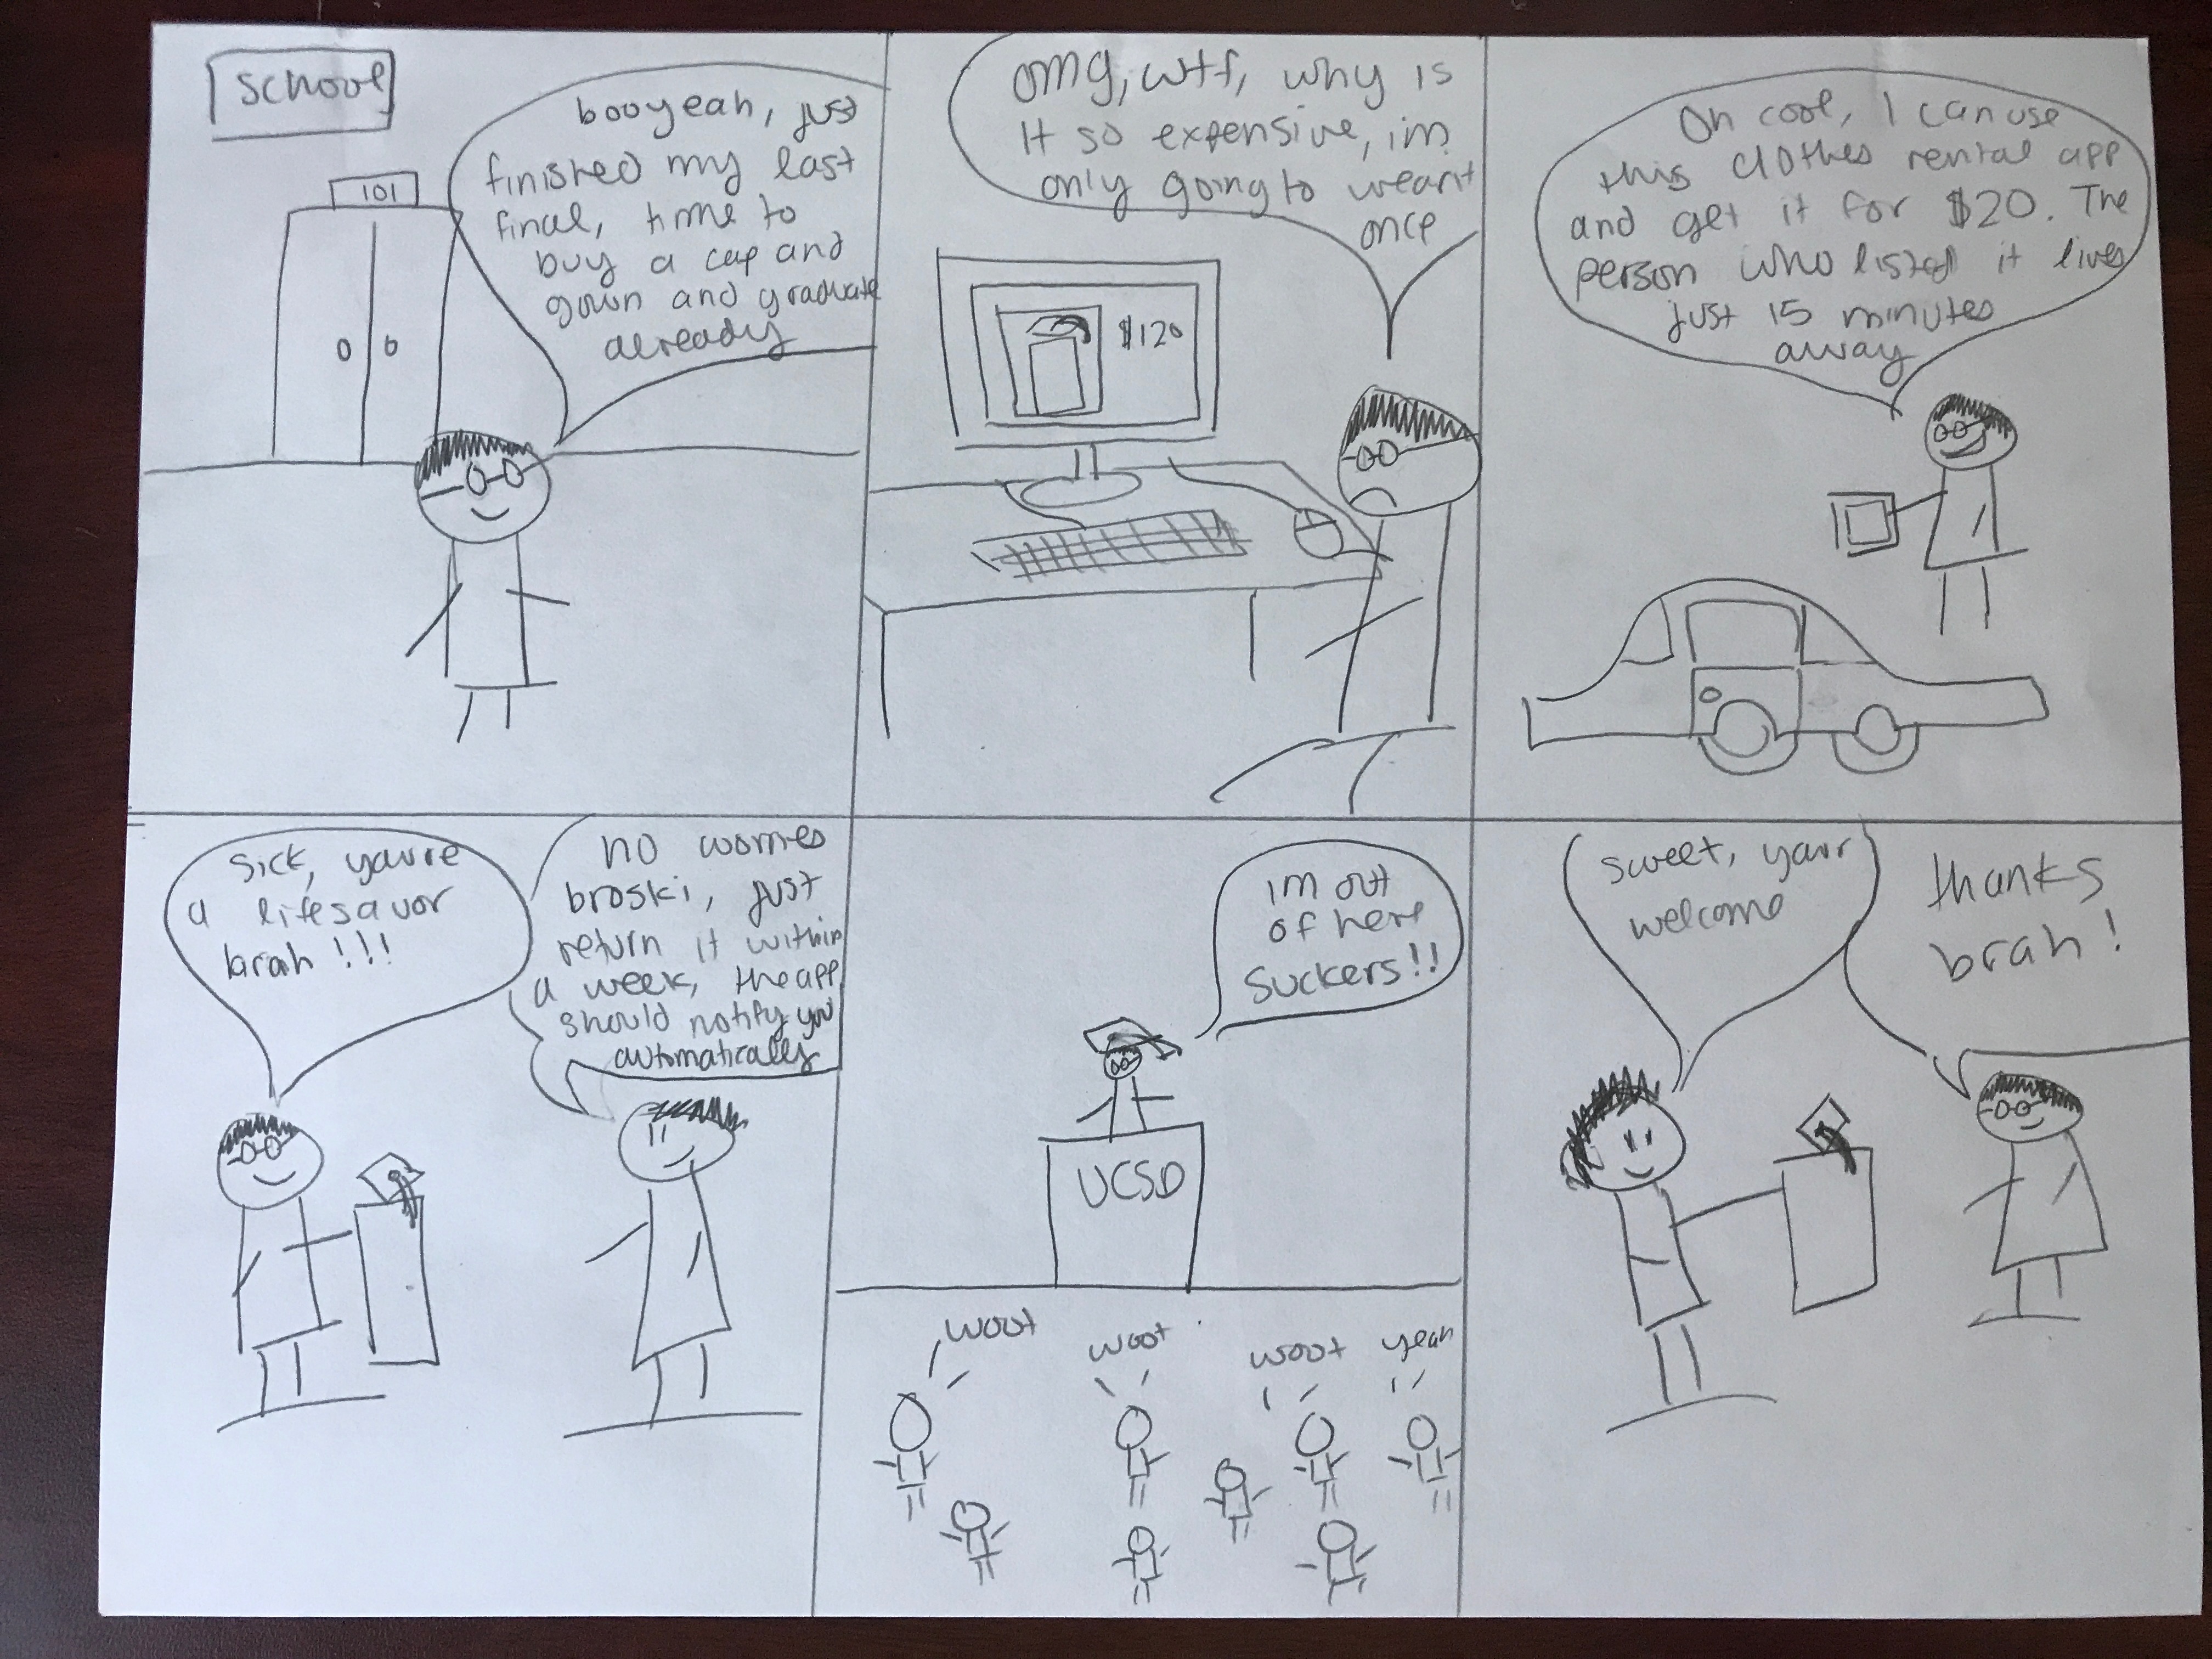 school
101
booyeah, just
finished my last
final, time to
buy a cap and
gown and graduate
already
omg, wtf, why is
it so expensive, im
only going to wear it
once
$120
Oh cool, I can use
this clothes rental app
and get it for $20. The
person who listed it lives
just 15 minutes
away
sick, you're
a lifesavor
brah!!!
no worries
broski, just
return it within
a week, the app
should notify you
automatically
im out
of here
suckers!!
UCSD
woot
woot
woot
yeah
sweet, your
welcome
thanks
brah!